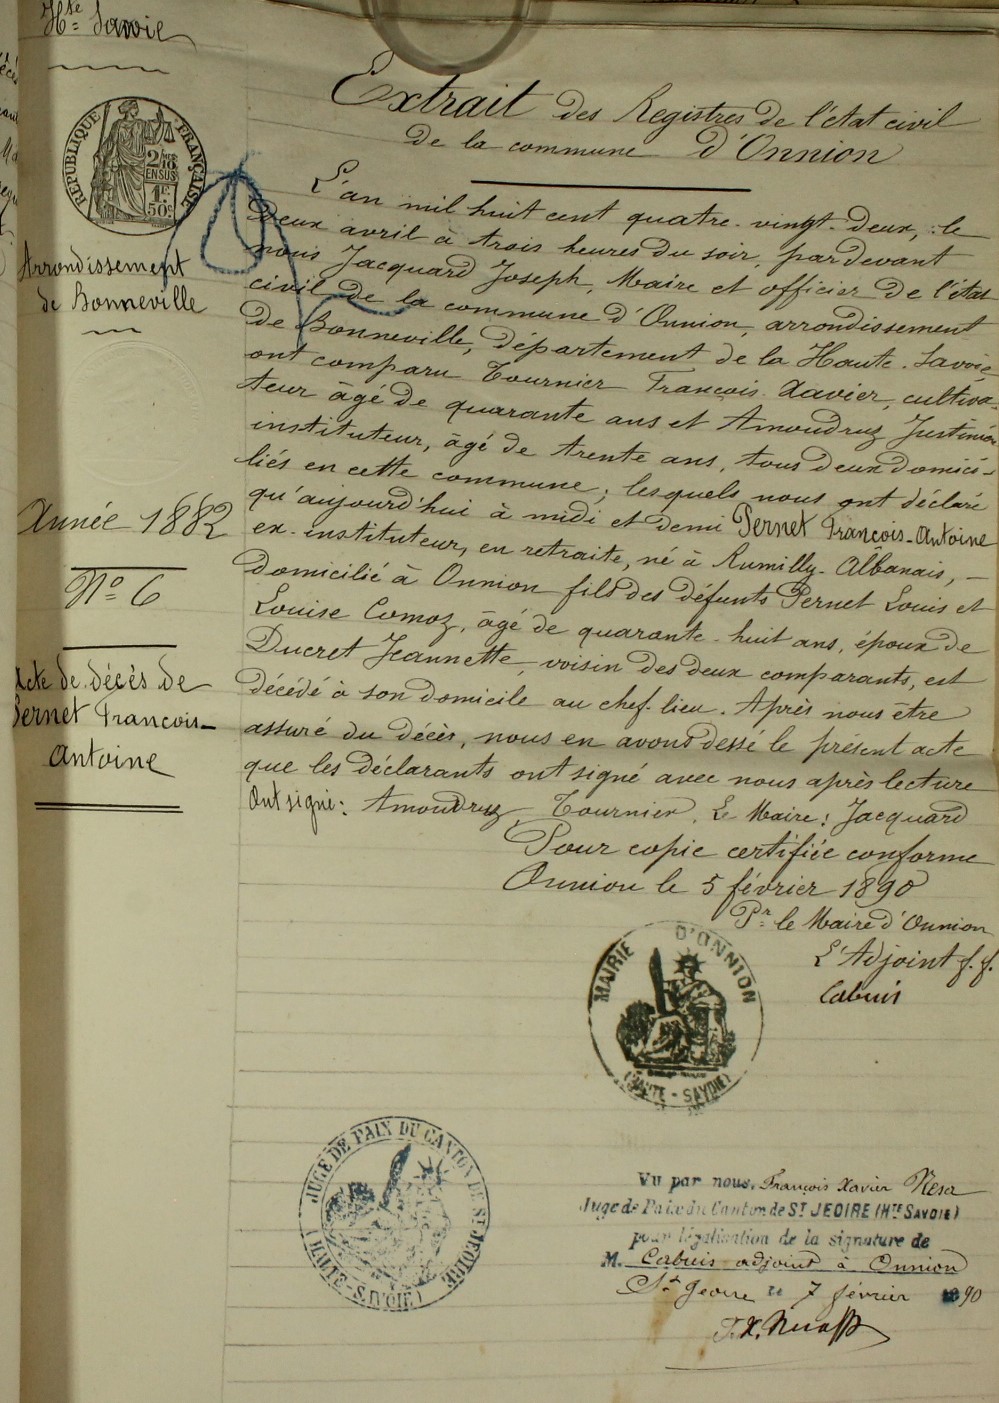 Hte Savoie
RÉPUBLIQUE FRANÇAISE
2/10 EN SUS
1F. 50c.
Arrondissement
de Bonneville
Année 1882
No 6
Acte de décès de
Pernet François-
Antoine
Extrait des Registres de l'état civil
de la commune d'Onnion
L'an mil huit cent quatre-vingt-deux, le
deux avril à trois heures du soir, par devant
nous Jacquard Joseph, Maire et officier de l'état
civil de la commune d'Onnion, arrondissement
de Bonneville, département de la Haute-Savoie,
ont comparu Tournier François-Xavier, cultiva-
teur âgé de quarante ans et Amoudruz Justinien
instituteur, âgé de trente ans, tous deux domici-
liés en cette commune; lesquels nous ont déclaré
qu'aujourd'hui à midi et demi Pernet François-Antoine
ex-instituteur, en retraite, né à Rumilly-Albanais, -
domicilié à Onnion fils des défunts Pernet Louis et
Louise Comoz, âgé de quarante-huit ans, époux de
Ducret Jeannette, voisin des deux comparants, est
décédé à son domicile au chef-lieu. Après nous être
assuré du décès, nous en avons dessé le présent acte
que les déclarants ont signé avec nous après lecture
Ont signé: Amoudruz, Tournier, Le Maire: Jacquard
Pour copie certifiée conforme
Onnion le 5 février 1890
Pr le Maire d'Onnion
L'Adjoint f.f.
Cabuis
MAIRIE D'ONNION
(HAUTE-SAVOIE)
JUGE DE PAIX DU CANTON DE ST JEOIRE
(HAUTE-SAVOIE)
Vu par nous, François Xavier
Juge de Paix du Canton de ST JEOIRE (HTE SAVOIE)
pour légalisation de la signature de
M. Cabuis adjoint à Onnion
St Jeoire le 7 février 1890
F.X.